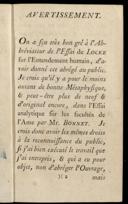 AVERTISSEMENT.
On a sçu très bon gré à l'Ab-
bréviateur de l'Essai de LOCKE
sur l'Entendement humain, d'a-
voir donné cet abrégé au public.
Je crois qu'il y a pour le moins
autant de bonne Métaphysique,
& peut-être plus de neuf &
d'original encore, dans l'Essai
analytique sur les facultés de
l'Ame par Mr. BONNET. Je
crois donc avoir les mêmes droits
à la reconnoissance du public,
si j'ai bien exécuté le travail que
j'ai entrepris, & qui a eu pour
objet, non d'abréger l'Ouvrage,
mais